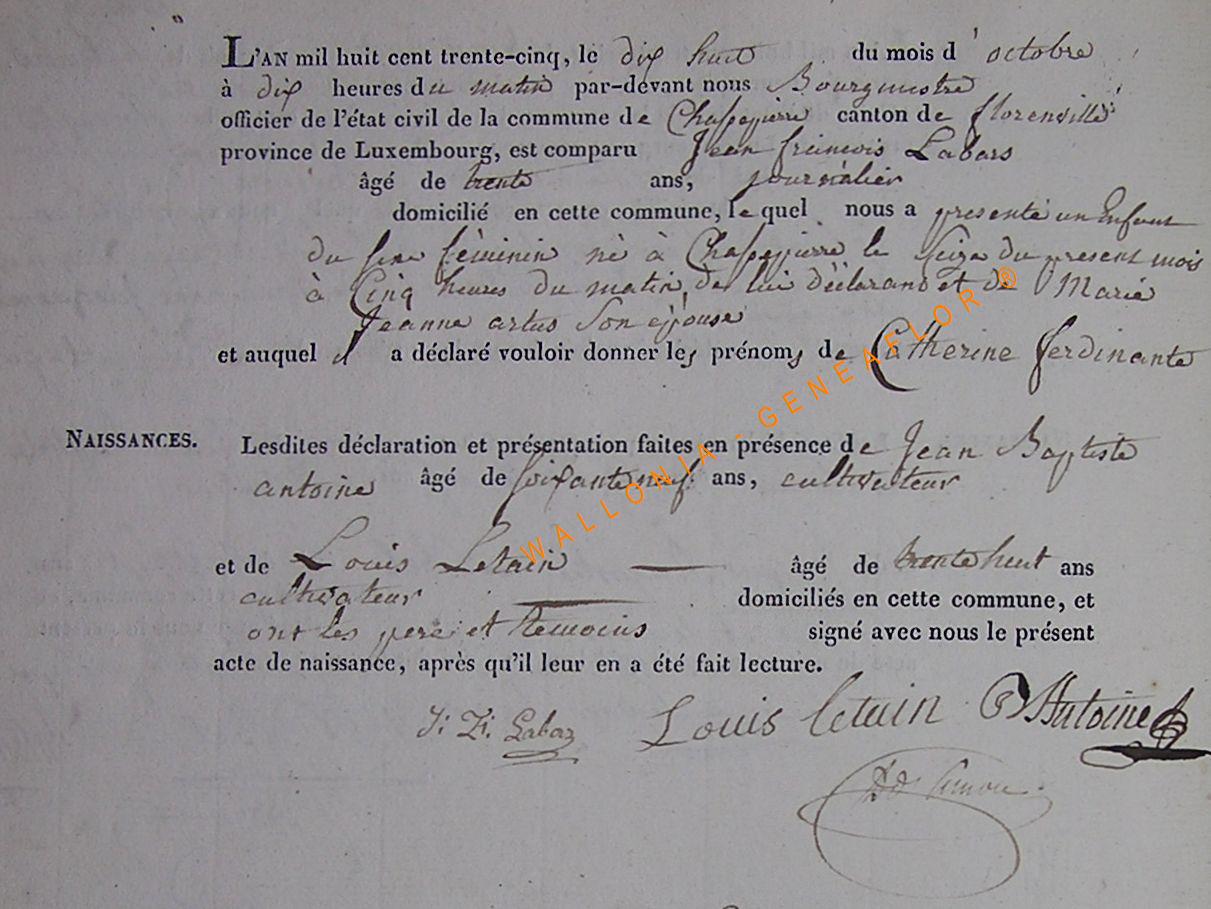 L'AN mil huit cent trente-cinq, le dix huit du mois d'octobre
à dix heures du matin par-devant nous Bourgmestre
officier de l'état civil de la commune de Chassepierre canton de florenville
province de Luxembourg, est comparu Jean françois Labars
âgé de trente ans, journalier
domicilié en cette commune, lequel nous a presenté un Enfant
du sexe féminin né à Chassepierre le seize du present mois
à Cinq heures du matin, de lui déclarant et de Marie
Jeanne artus Son épouse
et auquel il a déclaré vouloir donner les prénoms de Catherine ferdinante
NAISSANCES. Lesdites déclaration et présentation faites en présence de Jean Baptiste
antoine âgé de soixante neuf ans, cultivateur
et de Louis Letain âgé de trente huit ans
cultivateur domiciliés en cette commune, et
ont les pere et temoins signé avec nous le présent
acte de naissance, après qu'il leur en a été fait lecture.
J: F: Labar Louis letain Antoine
WALLONIA - GENEAFLOR ®